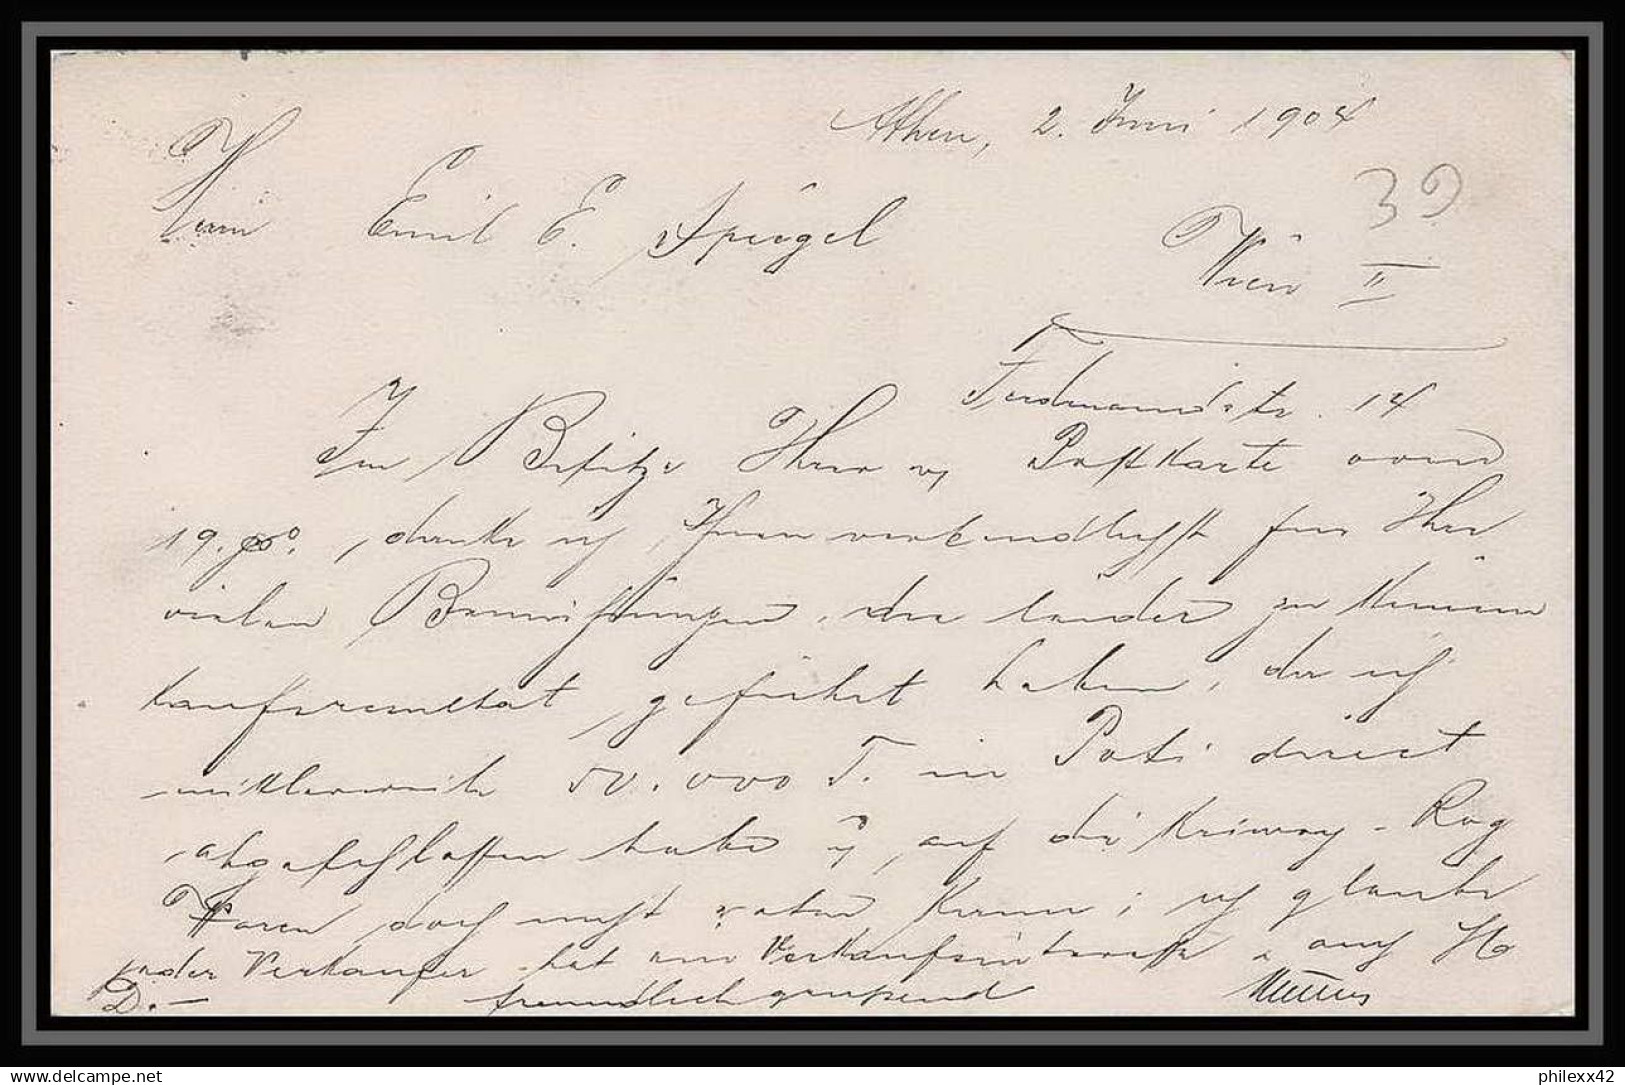 Athen, 2. Juni 1904
39
Herrn Emil E. Spiegel
Wien II
Ferdinandstr. 14
Im Besitze Ihrer Postkarte vom
19. po., danke ich Ihnen verbindlichst für Ihre
vielen Bemühungen, die leider zu keinem
Kaufresultat geführt haben, da ich
mittlerweile 50.000 T. in Poti direct
abgeschlossen habe & auf die Kriwoy-Rog
Waren doch nicht kann; ich glaube
jeder Verkäufer hat ein Verkaufsinteresse & auch H
D. — freundlich grüssend
philexx42.com
philexx42